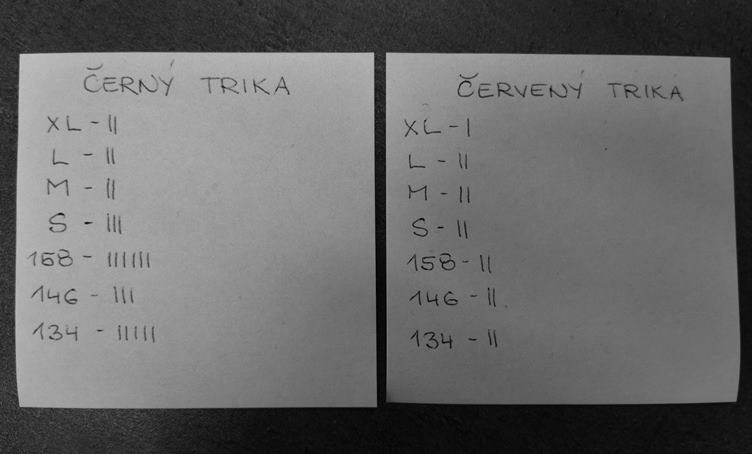 ČERNÝ TRIKA
XL - II
L - II
M - II
S - III
158 - IIIIII
146 - III
134 - IIIII
ČERVENÝ TRIKA
XL - I
L - II
M - II
S - II
158 - II
146 - II
134 - II